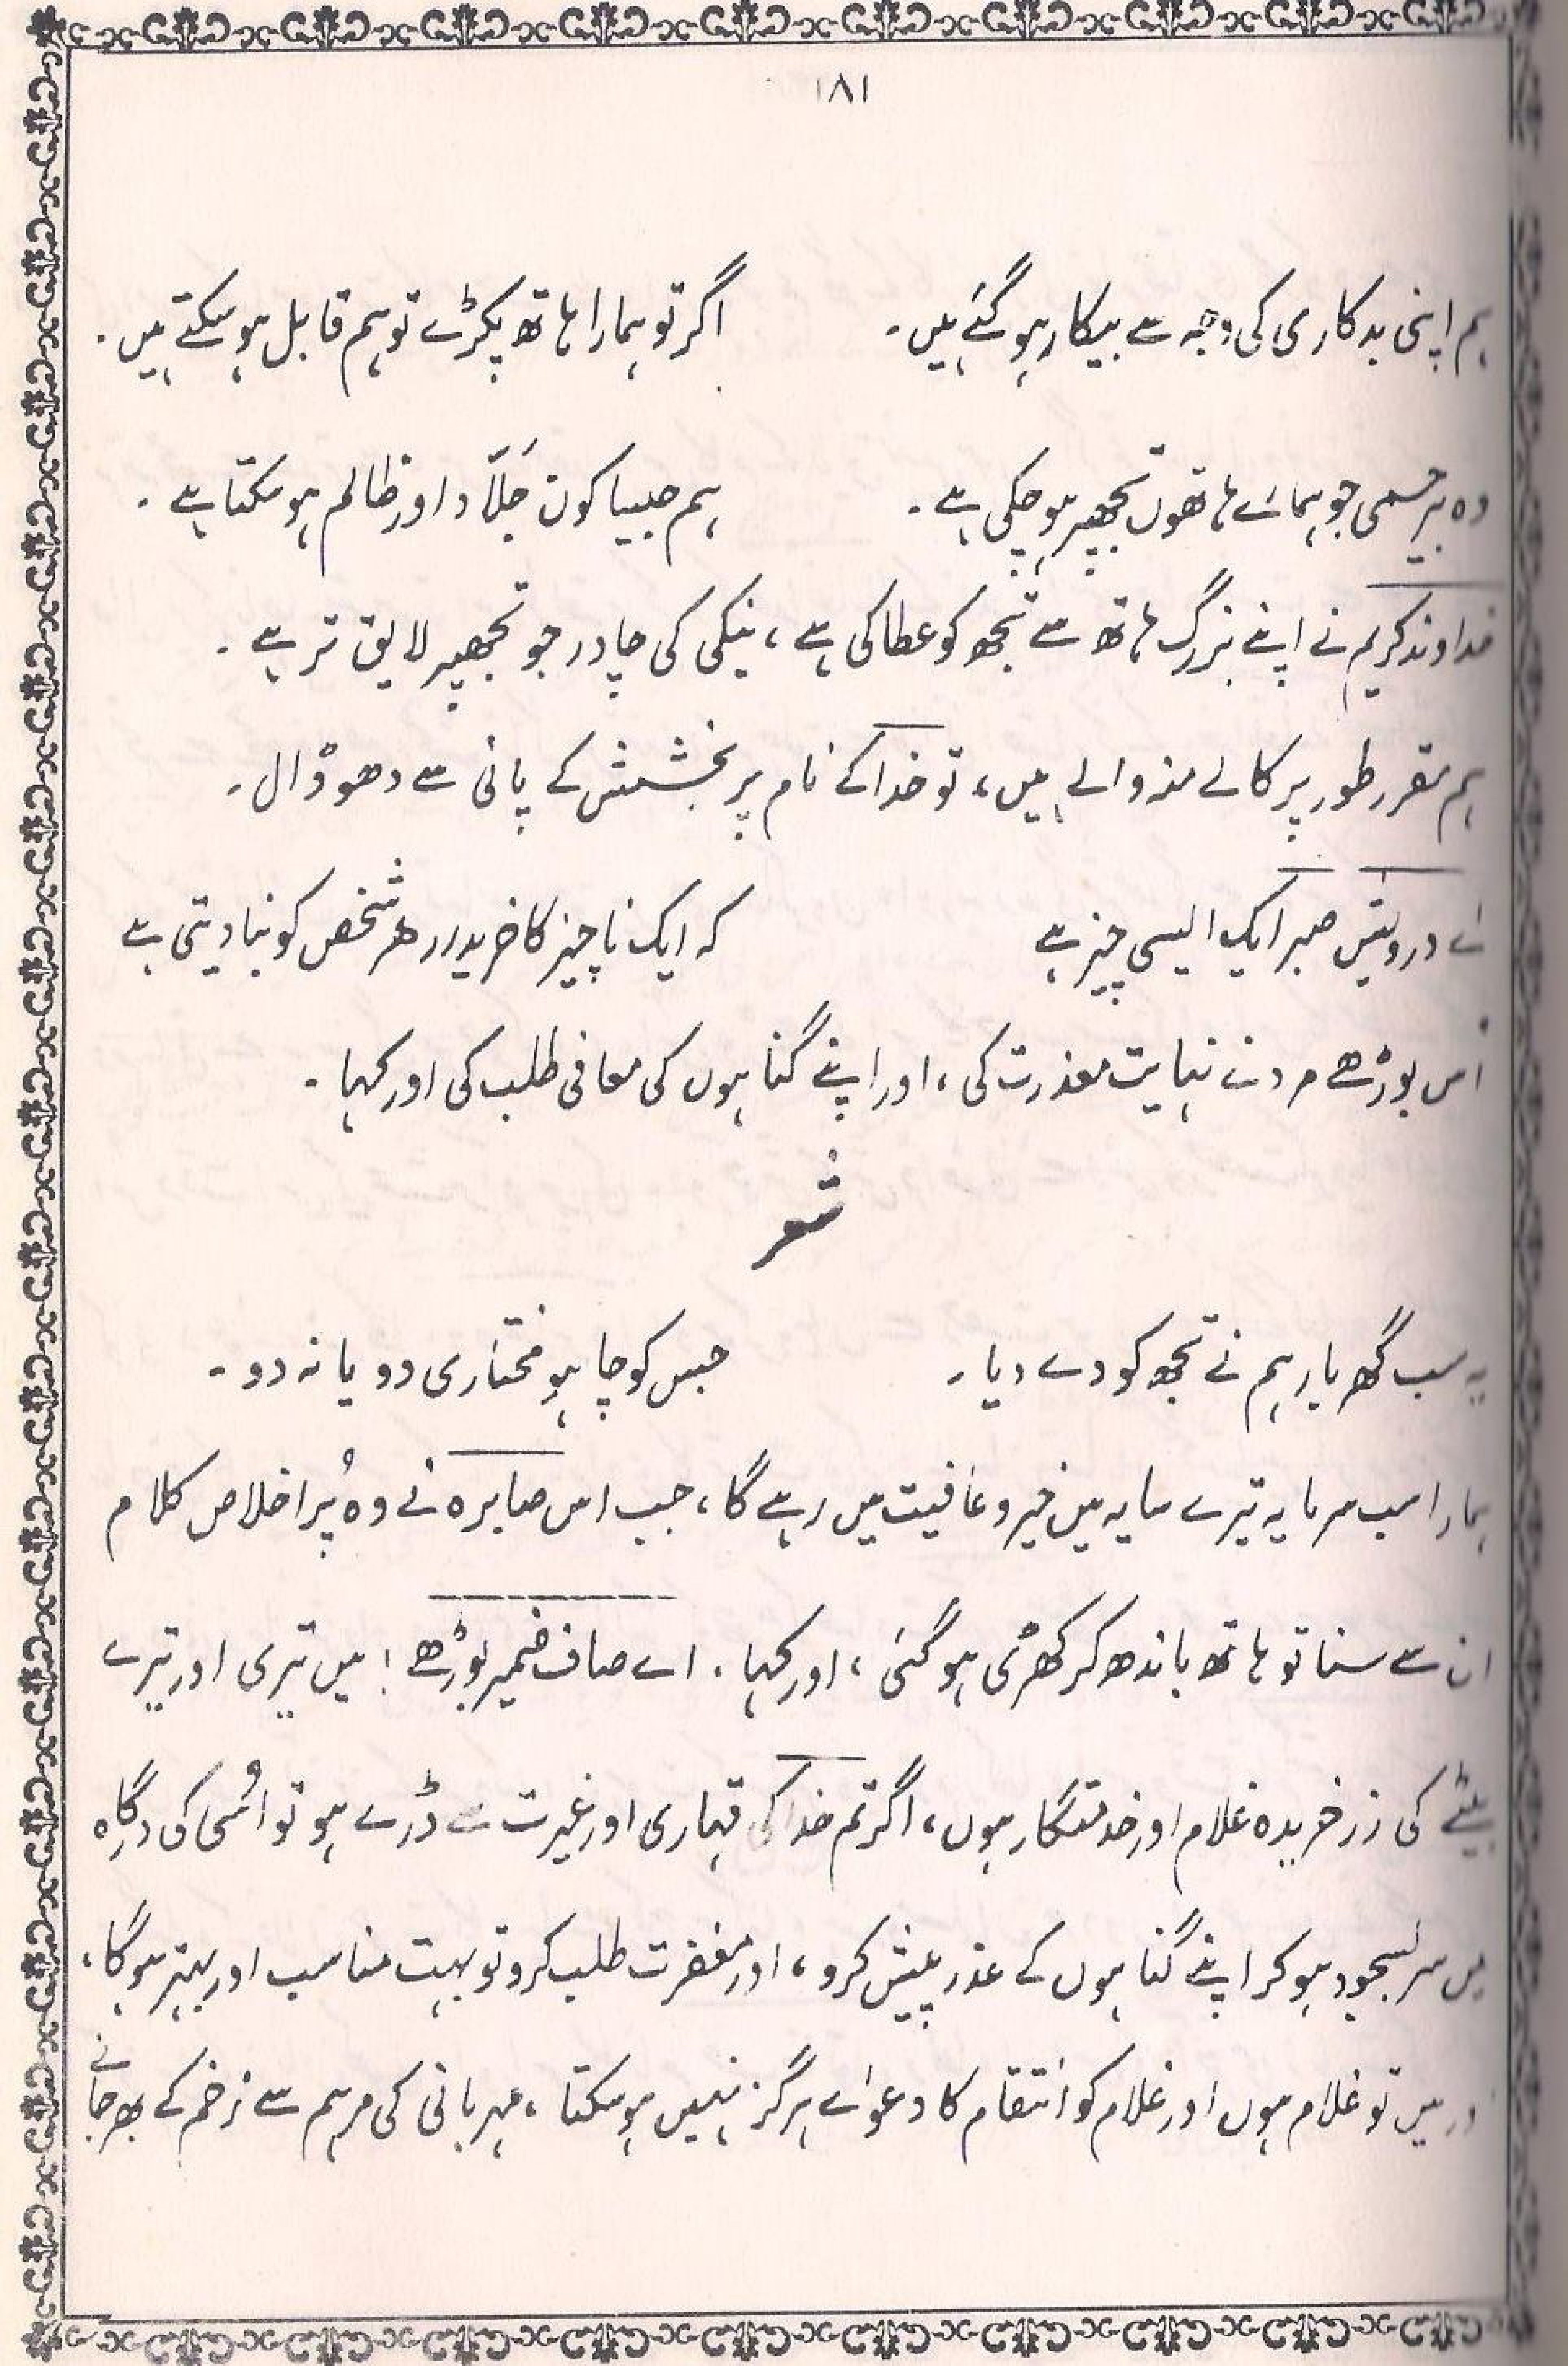 ۱۸۱
ہم اپنی بدکاری کی وجہ سے بیکار ہو گئے ہیں۔ اگر تو ہمارا ہاتھ پکڑے تو ہم قابل ہو سکتے ہیں۔
وہ بیرحمی جو ہمارے ہاتھوں تجھپر ہو چکی ہے۔ ہم جیسا کون جَلّاد اور ظالم ہو سکتا ہے۔
خداوند کریم نے اپنے بزرگ ہاتھ سے تجھ کو عطا کی ہے، نیکی کی چادر جو تجھپر لایق تر ہے۔
ہم مقرر طور پر کالے منہ والے ہیں، تو خدا کے نام پر بخشش کے پانی سے دھو ڈال۔
اے درویش صبر ایک ایسی چیز ہے کہ ایک ناچیز کا خریدار ہر شخص کو بنا دیتی ہے
اُس بوڑھے مرد نے نہایت معذرت کی، اور اپنے گناہوں کی معافی طلب کی اور کہا۔
شعر
یہ سب گھر بار ہم نے تجھ کو دے دیا۔ جس کو چاہو مختاری دو یا نہ دو۔
ہمارا سب سرمایہ تیرے سایہ میں خیر و عافیت میں رہے گا، جب اس صابرہ نے وہ پُر اخلاص کلام
ان سے سنا تو ہاتھ باندھ کر کھڑی ہو گئی، اور کہا۔ اے صاف ضمیر بوڑھے! میں تیری اور تیرے
بیٹے کی زرخریدہ غلام اور خدمتگار ہوں، اگر تم خدا کی قہاری اور غیرت سے ڈرے ہو تو اُسی کی درگاہ
میں سر بسجود ہو کر اپنے گناہوں کے عذر پیش کرو، اور مغفرت طلب کرو تو بہت مناسب اور بہتر ہو گا،
اور میں تو غلام ہوں اور غلام کو انتقام کا دعوٰے ہرگز نہیں ہو سکتا، مہربانی کی مرہم سے زخم کے بھر جانے